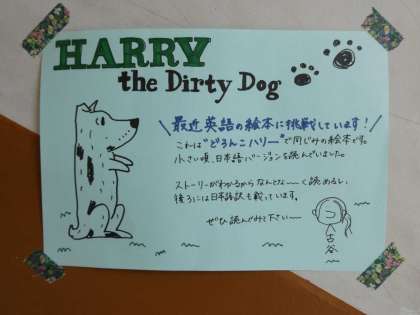 HARRY
the Dirty Dog
最近英語の絵本に挑戦しています!
これは"どろんこハリー"で同じみの絵本です。
小さい頃、日本語バージョンを読んでいました。
ストーリーがわかるからなんとな〜く読めるし、
後ろには日本語訳も載っています。
ぜひ読んでみて下さい〜
古谷